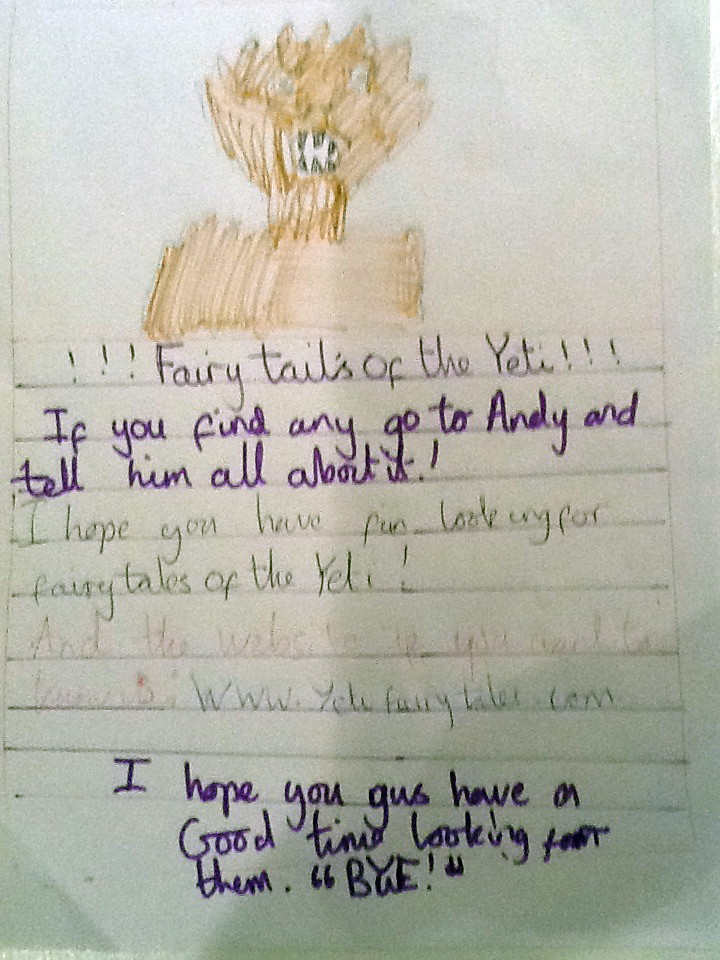 !!! Fairy tail's of the Yeti!!!
If you find any go to Andy and
tell him all about it.!
I hope you have fun looking for
fairytales of the Yeti!
And the website if you want to
know is: WWW.Yeti fairytales.com
I hope you gus have a
Good time looking for
them. "BYE!"